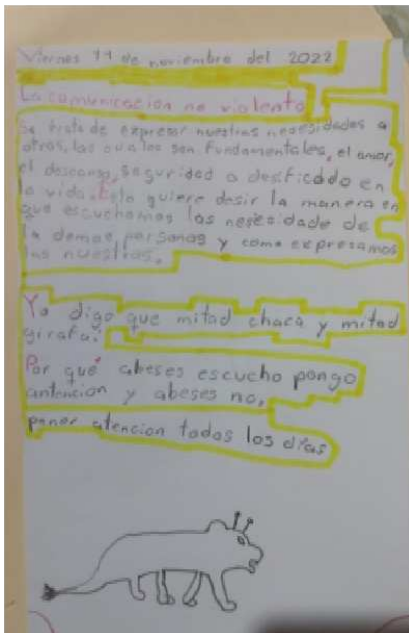 Viernes 11 de noviembre del 2022
La comunicacion no violenta
se trata de expresar nuestras necesidades a
otros, las cuales son fundamentales, el amor,
el descanso, seguridad o desficado en
la vida. Esto quiere desir la manera en
que escuchamos las nesesidade de
la demas personas y como expresamos
las nuestras.
Yo digo que mitad chaca y mitad
girafa.
Por que abeses escucho pongo
antencion y abeses no,
poner atencion todos los dias